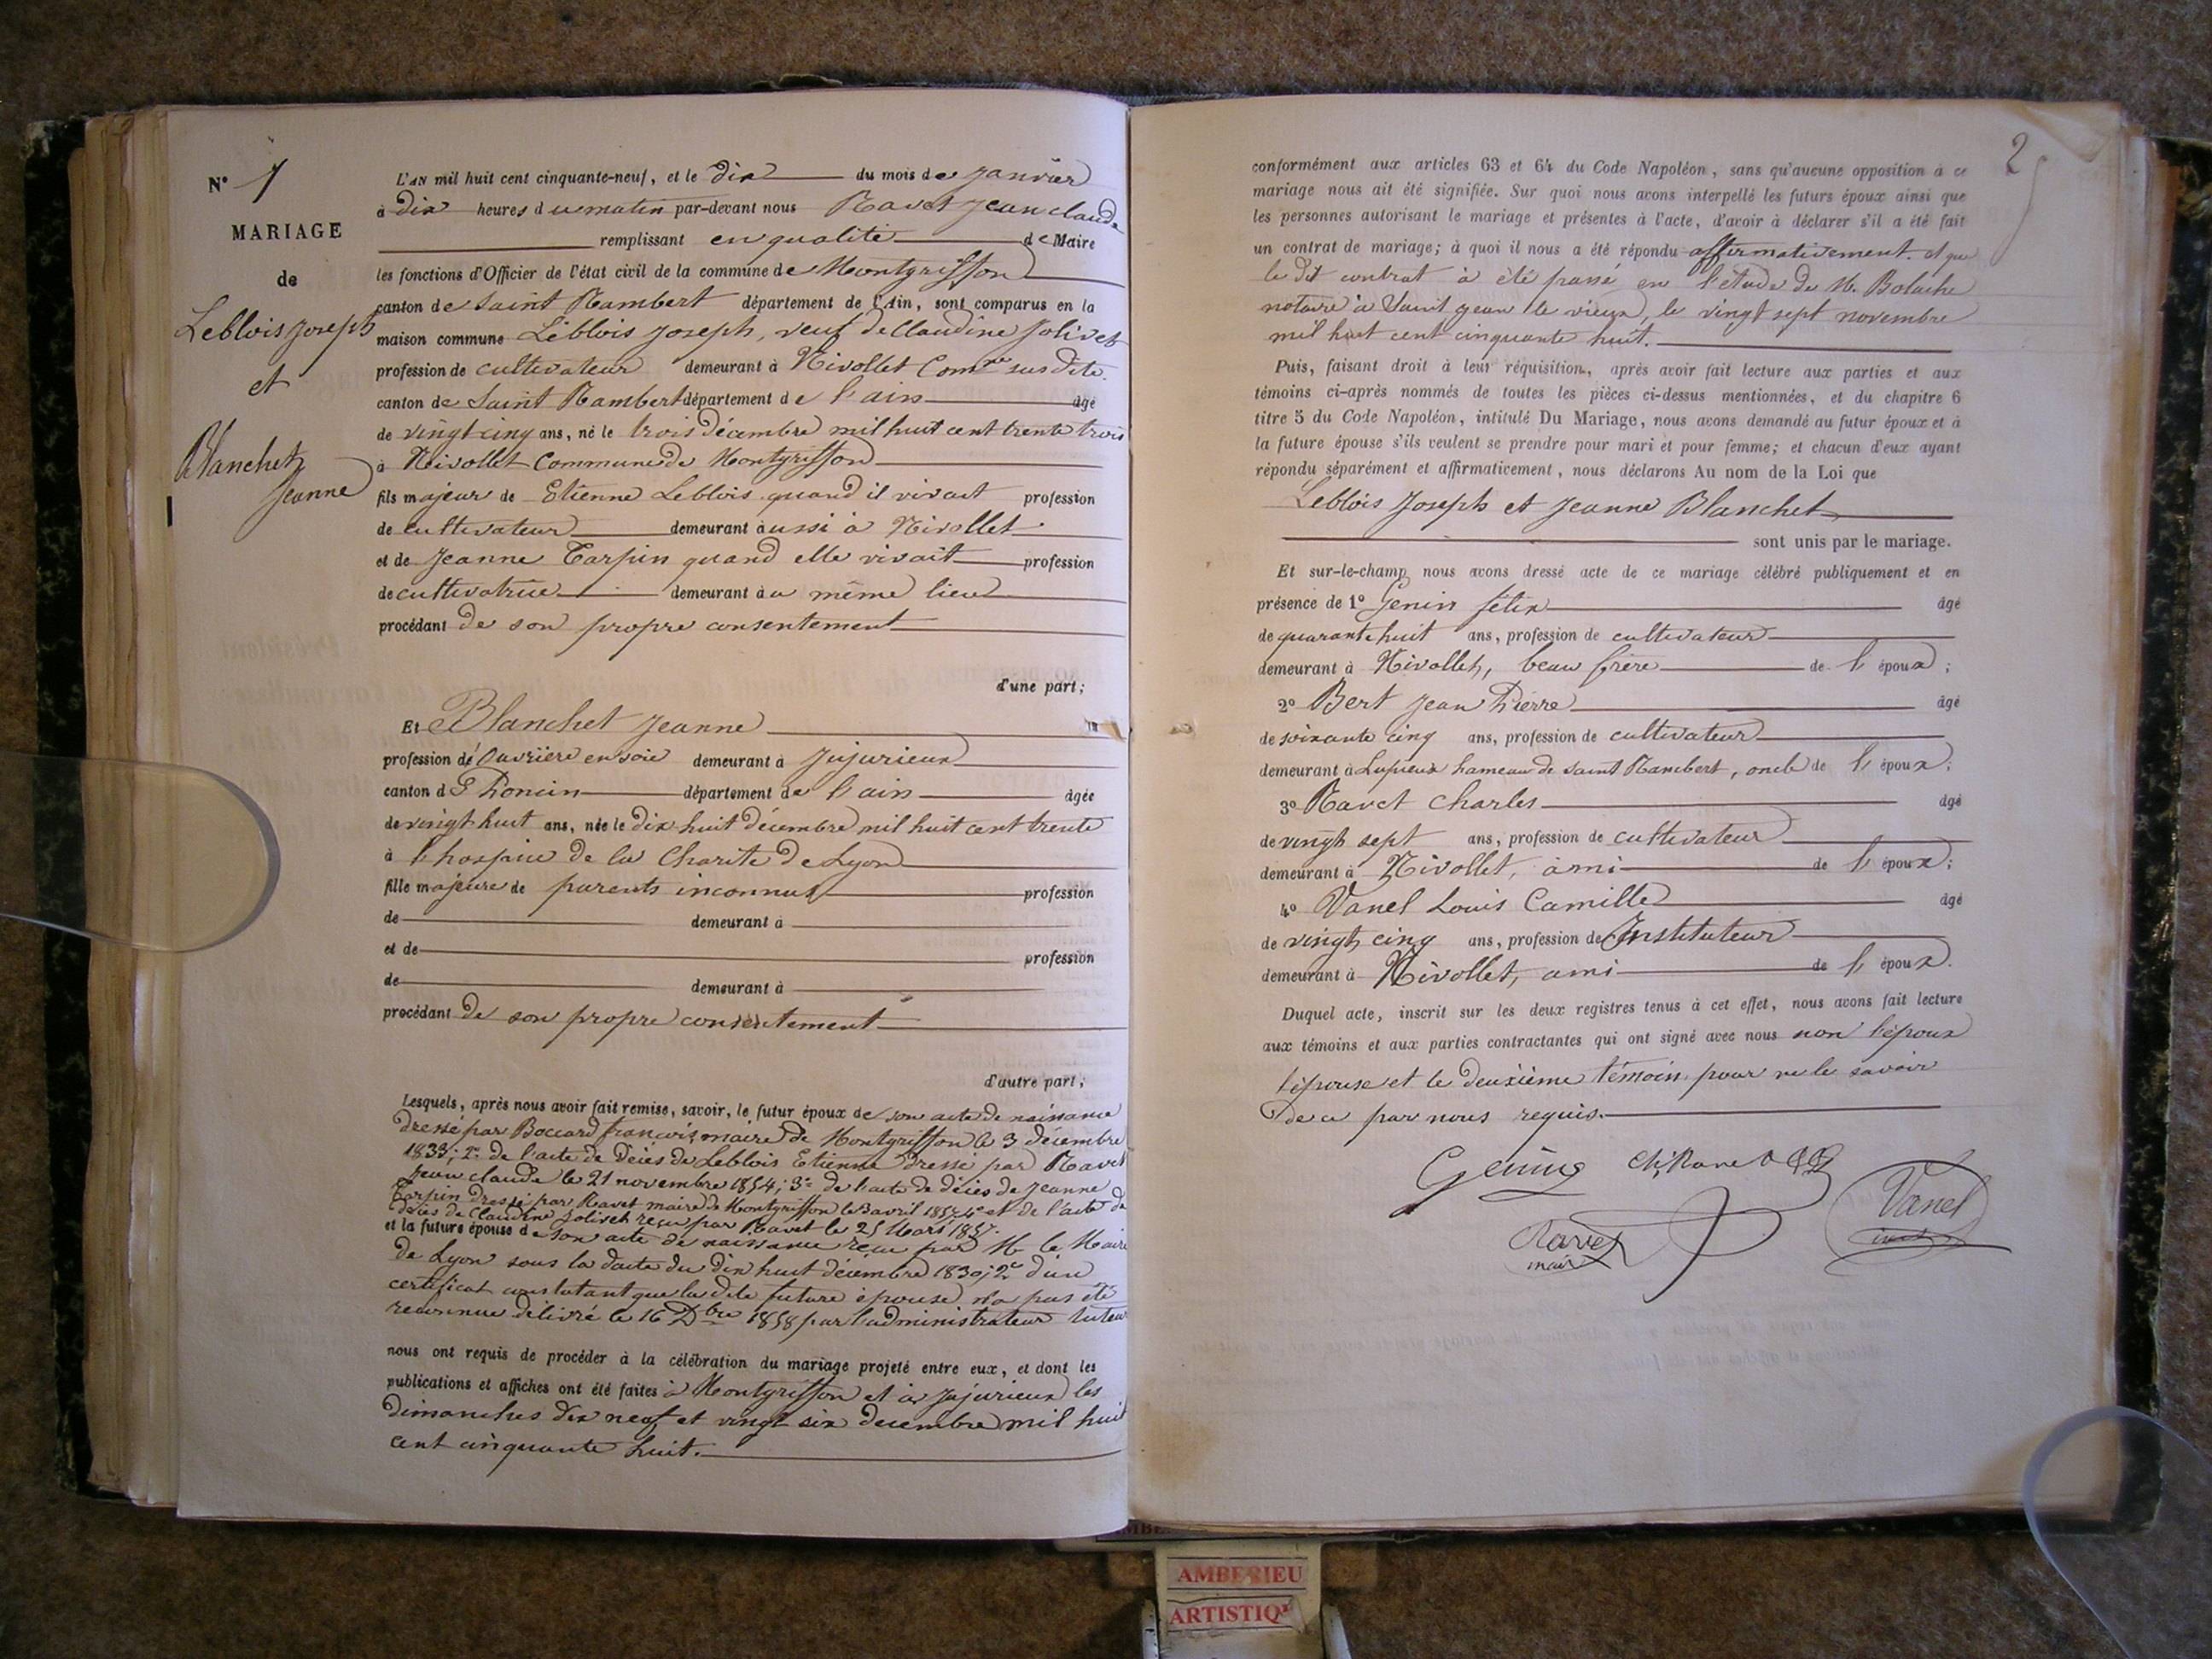 N° 1
MARIAGE
de
Leblois Joseph
et
Blanchet
Jeanne
L'AN mil huit cent cinquante-neuf, et le dix du mois de Janvier
à dix heures du matin par-devant nous Ravet Jean Claude
remplissant en qualité de Maire
les fonctions d'Officier de l'état civil de la commune de Montgriffon
canton de Saint Rambert département de l'Ain, sont comparus en la
maison commune Leblois Joseph, veuf de Claudine Jolivet
profession de cultivateur demeurant à Nivollet Comne sus dite
canton de Saint Rambert département de l'ain âgé
de vingt cinq ans, né le trois Décembre mil huit cent trente trois
à Nivollet Commune de Montgriffon
fils majeur de Etienne Leblois quand il vivait profession
de cultivateur demeurant aussi à Nivollet
et de Jeanne Tarpin quand elle vivait profession
de cultivatrice demeurant au même lieu
procédant de son propre consentement
d'une part;
Et Blanchet Jeanne
profession d'ouvrière en soie demeurant à Jujurieux
canton de Poncin département de l'ain âgée
de vingt huit ans, née le dix huit décembre mil huit cent trente
à l'hospice de la Charité de Lyon
fille majeure de parents inconnus profession
de demeurant à
et de profession
de demeurant à
procédant de son propre consentement
d'autre part;
Lesquels, après nous avoir fait remise, savoir, le futur époux de son acte de naissance
dressé par Boccard françois, maire de Montgriffon le 3 décembre
1833; 2° de l'acte de décès de Leblois Etienne dressé par Ravet
Jean claude le 21 novembre 1854; 3° de l'acte de décès de Jeanne
Tarpin dressé par Ravet maire de Montgriffon le 3 avril 1857 4° et de l'acte de
décès de Claudine Jolivet reçu par Ravet le 25 Mars 1857.
et la future épouse de son acte de naissance reçu par Mr le Maire
de Lyon sous la date du dix huit décembre 1830; 2° d'un
certificat constatant que la dite future épouse n'a pas été
reconnue délivré le 16 Dbre 1858 par l'administrateur tuteur
nous ont requis de procéder à la célébration du mariage projeté entre eux, et dont les
publications et affiches ont été faites à Montgriffon et à Jujurieux les
dimanches dix neuf et vingt six decembre mil huit
cent cinquante huit.
2
conformément aux articles 63 et 64 du Code Napoléon, sans qu'aucune opposition à ce
mariage nous ait été signifiée. Sur quoi nous avons interpellé les futurs époux ainsi que
les personnes autorisant le mariage et présentes à l'acte, d'avoir à déclarer s'il a été fait
un contrat de mariage; à quoi il nous a été répondu affirmativement. et que
le dit contrat à été passé en l'étude de M. Bolache
notaire à Saint Jean le vieux, le vingt sept novembre
mil huit cent cinquante huit.
Puis, faisant droit à leur réquisition, après avoir fait lecture aux parties et aux
témoins ci-après nommés de toutes les pièces ci-dessus mentionnées, et du chapitre 6
titre 5 du Code Napoléon, intitulé Du Mariage, nous avons demandé au futur époux et à
la future épouse s'ils veulent se prendre pour mari et pour femme; et chacun d'eux ayant
répondu séparément et affirmativement, nous déclarons Au nom de la Loi que
Leblois Joseph et Jeanne Blanchet
sont unis par le mariage.
Et sur-le-champ nous avons dressé acte de ce mariage célébré publiquement et en
présence de 1° Genin félix âgé
de quarante huit ans, profession de cultivateur
demeurant à Nivollet, beau frère de l'époux;
2° Bert Jean Pierre âgé
de soixante cinq ans, profession de cultivateur
demeurant à Lupieux hameau de Saint Rambert, oncle de l'époux;
3° Ravet Charles âgé
de vingt sept ans, profession de cultivateur
demeurant à Nivollet, ami de l'époux;
4° Vanel Louis Camille âgé
de vingt cinq ans, profession de Instituteur
demeurant à Nivollet, ami de l'époux.
Duquel acte, inscrit sur les deux registres tenus à cet effet, nous avons fait lecture
aux témoins et aux parties contractantes qui ont signé avec nous non l'époux
l'épouse et le deuxième témoin pour ne le savoir
de ce par nous requis.
Genin Ch. Ravet
Vanel
Ravet
maire
AMBERIEU
ARTISTIQUE